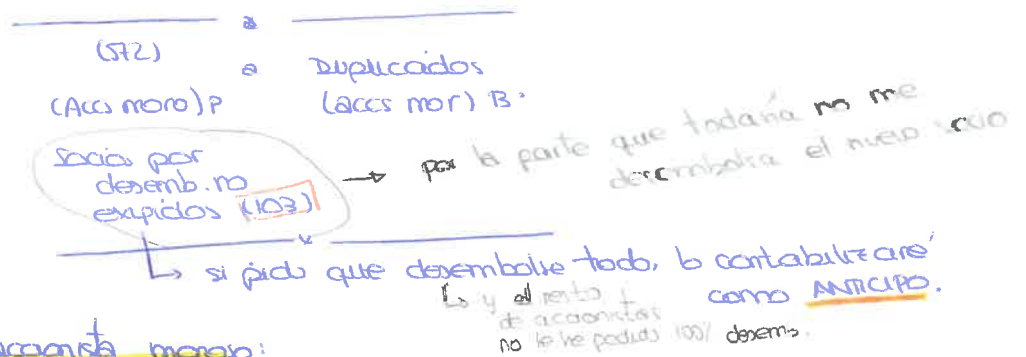 (572)
a Duplicados
(Accs moro) P (accs mor) B.
Socios por
desemb. no
exigidos (103)
→ por la parte que todavía no me
desembolsa el nuevo socio
↳ si pido que desembolse todo, lo contabilizaré
como ANTICIPO.
↳ y al resto
de accionistas
no le he pedido 100% desem.
accionista moroso: